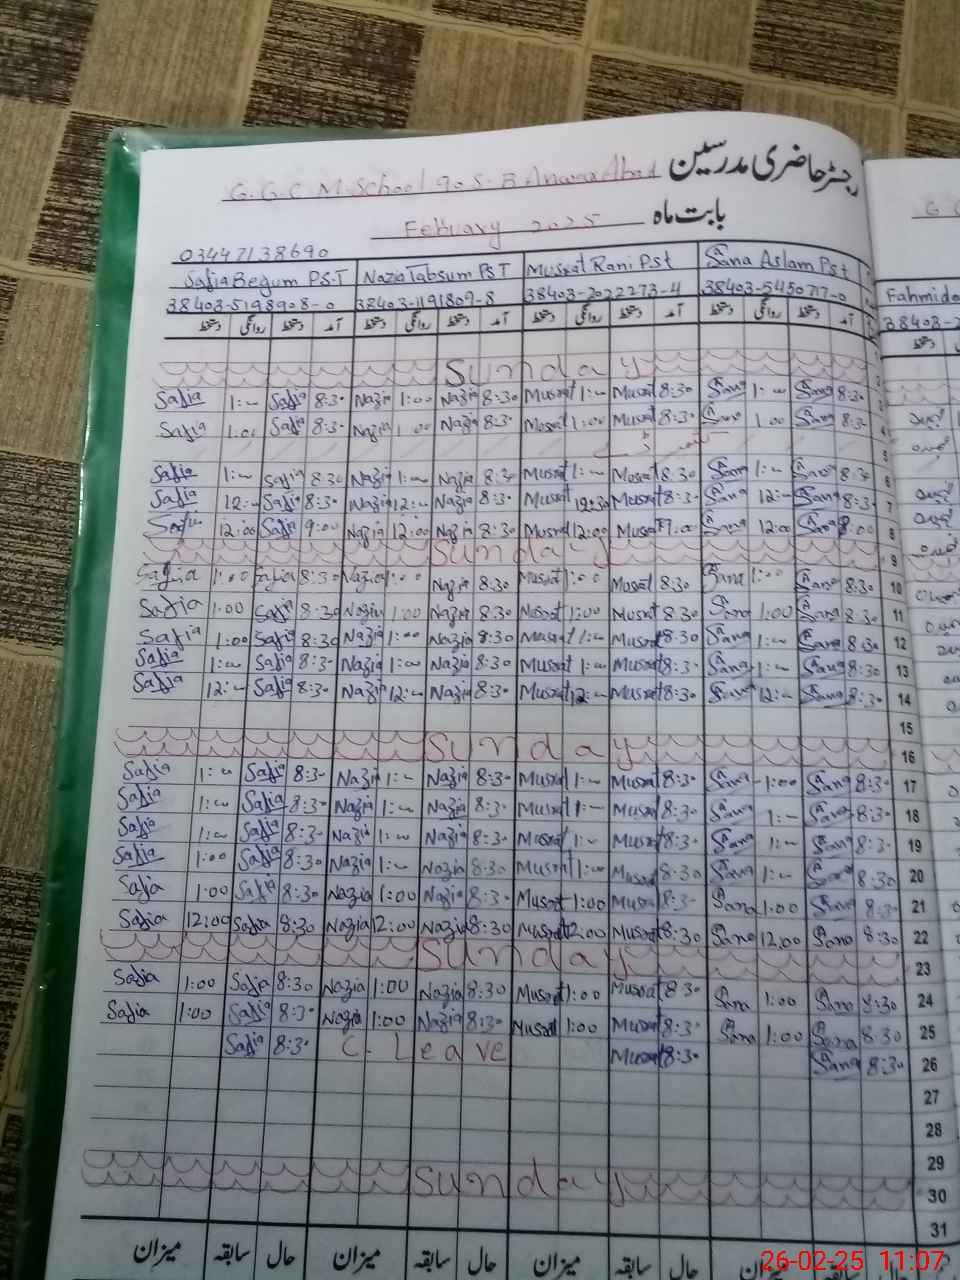 رجسٹر حاضری مدرسین G.G.C.M.School 90 S.B Anwar Abad
بابت ماہ February 2025
03447138690
Safia Begum P.S.T Nazia Tabsum PST Musrat Rani Pst Sana Aslam Pst
38403-5198908-0 38403-1191809-8 38403-2022273-4 38403-5450717-0
دستخط روانگی دستخط آمد دستخط روانگی دستخط آمد دستخط روانگی دستخط آمد دستخط روانگی دستخط آمد
1
Sunday 2
Safia 1:00 Safia 8:30 Nazia 1:00 Nazia 8:30 Musrat 1:00 Musrat 8:30 Sana 1:00 Sana 8:30 3
Safia 1:00 Safia 8:30 Nazia 1:00 Nazia 8:30 Musrat 1:00 Musrat 8:30 Sana 1:00 Sana 8:30 4
5
Safia 1:00 Safia 8:30 Nazia 1:00 Nazia 8:30 Musrat 1:00 Musrat 8:30 Sana 1:00 Sana 8:30 6
Safia 12:00 Safia 8:30 Nazia 12:00 Nazia 8:30 Musrat 12:30 Musrat 8:30 Sana 12:00 Sana 8:30 7
Safia 12:00 Safia 9:00 Nazia 12:00 Nazia 8:30 Musrat 12:00 Musrat 9:00 Sana 12:00 Sana 8:00 8
Sunday 9
Safia 1:00 Safia 8:30 Nazia 1:00 Nazia 8:30 Musrat 1:00 Musrat 8:30 Sana 1:00 Sana 8:30 10
Safia 1:00 Safia 8:30 Nazia 1:00 Nazia 8:30 Musrat 1:00 Musrat 8:30 Sana 1:00 Sana 8:30 11
Safia 1:00 Safia 8:30 Nazia 1:00 Nazia 8:30 Musrat 1:00 Musrat 8:30 Sana 1:00 Sana 8:30 12
Safia 1:00 Safia 8:30 Nazia 1:00 Nazia 8:30 Musrat 1:00 Musrat 8:30 Sana 1:00 Sana 8:30 13
Safia 12:00 Safia 8:30 Nazia 12:00 Nazia 8:30 Musrat 12:00 Musrat 8:30 Sana 12:00 Sana 8:30 14
15
Sunday 16
Safia 1:00 Safia 8:30 Nazia 1:00 Nazia 8:30 Musrat 1:00 Musrat 8:30 Sana 1:00 Sana 8:30 17
Safia 1:00 Safia 8:30 Nazia 1:00 Nazia 8:30 Musrat 1:00 Musrat 8:30 Sana 1:00 Sana 8:30 18
Safia 1:00 Safia 8:30 Nazia 1:00 Nazia 8:30 Musrat 1:00 Musrat 8:30 Sana 1:00 Sana 8:30 19
Safia 1:00 Safia 8:30 Nazia 1:00 Nazia 8:30 Musrat 1:00 Musrat 8:30 Sana 1:00 Sana 8:30 20
Safia 1:00 Safia 8:30 Nazia 1:00 Nazia 8:30 Musrat 1:00 Musrat 8:30 Sana 1:00 Sana 8:30 21
Safia 12:00 Safia 8:30 Nazia 12:00 Nazia 8:30 Musrat 12:00 Musrat 8:30 Sana 12:00 Sana 8:30 22
Sunday 23
Safia 1:00 Safia 8:30 Nazia 1:00 Nazia 8:30 Musrat 1:00 Musrat 8:30 Sana 1:00 Sana 8:30 24
Safia 1:00 Safia 8:30 Nazia 1:00 Nazia 8:30 Musrat 1:00 Musrat 8:30 Sana 1:00 Sana 8:30 25
Safia 8:30 C. Leave Musrat 8:30 Sana 8:30 26
27
28
29
Sunday 30
31
میزان سابقہ حال میزان سابقہ حال میزان سابقہ حال میزان
Fahmida
38403-2
دستخط
26-02-25 11:07